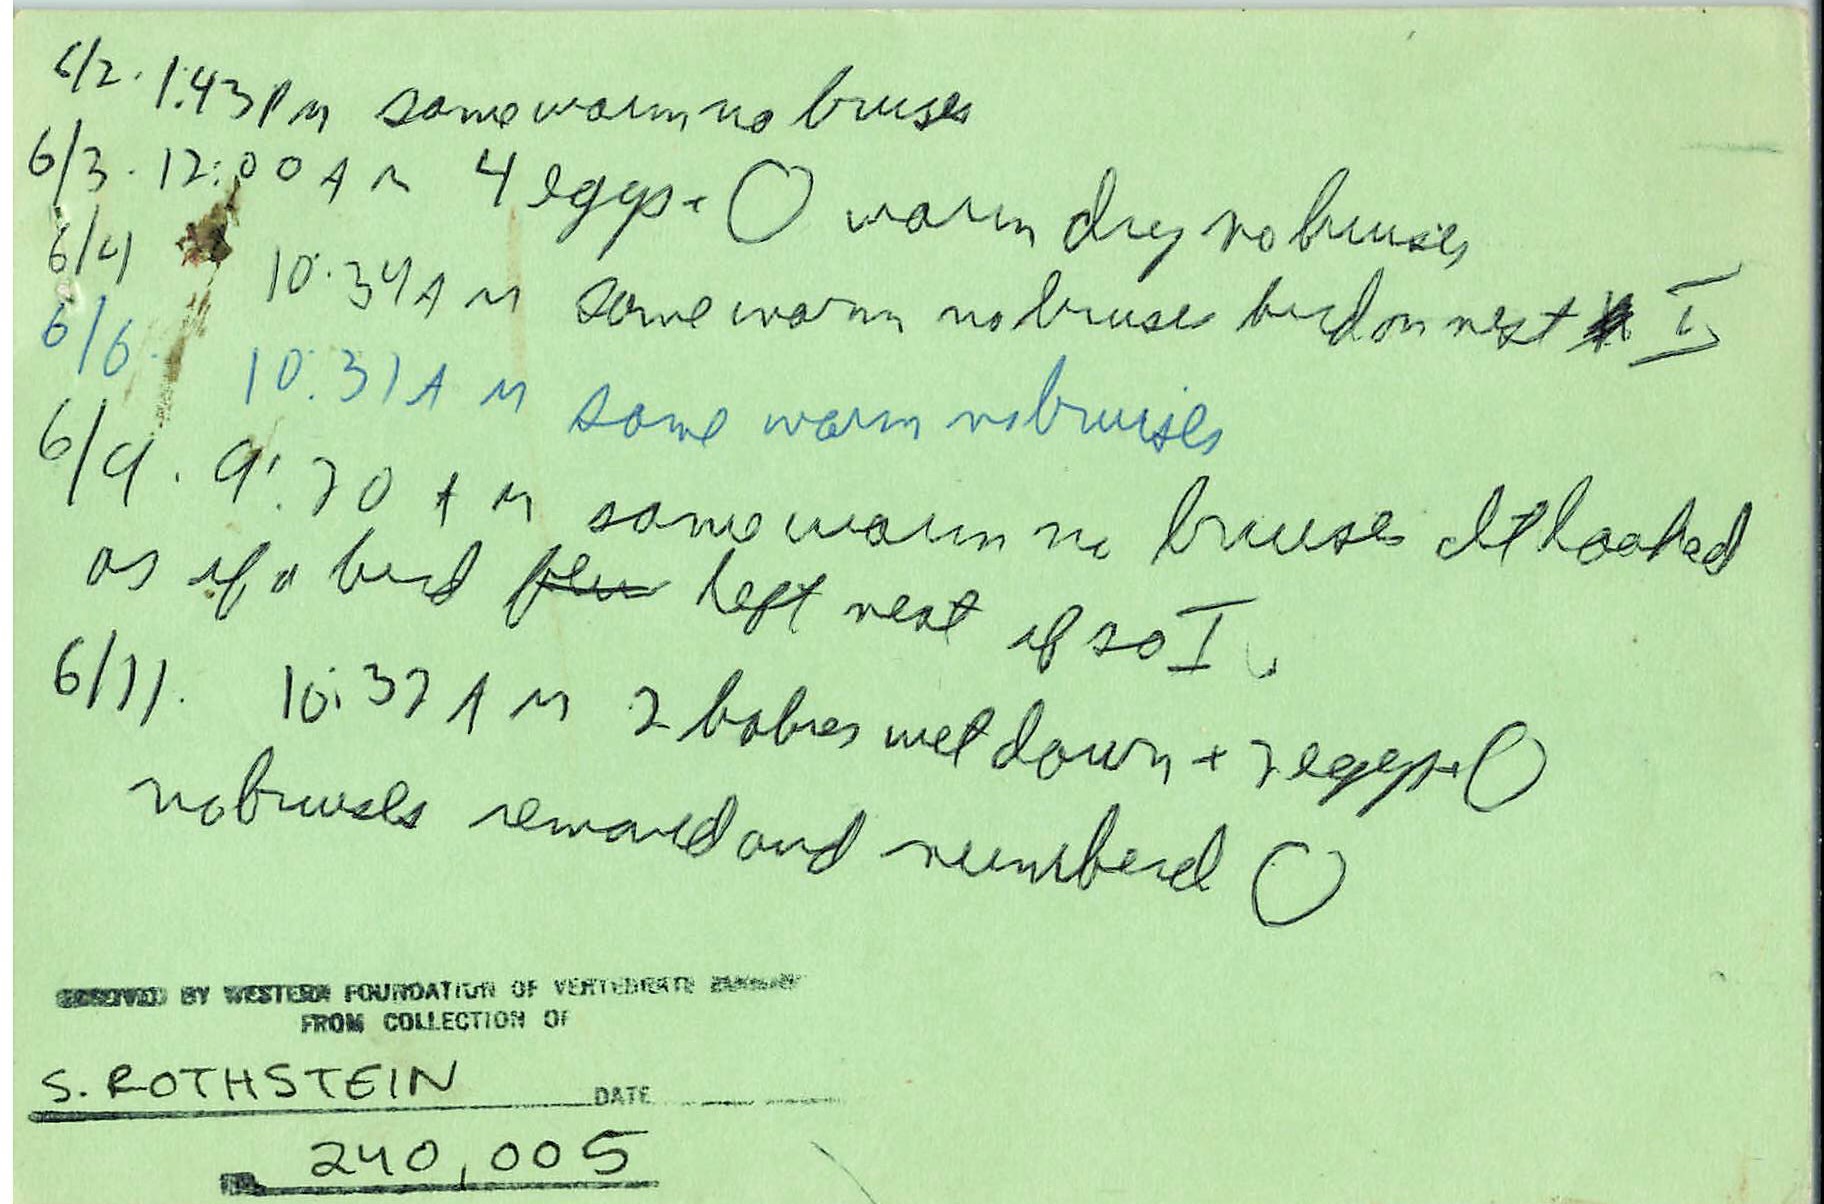 6/2. 1:43 PM same warm no bruises
6/3. 12:00 AM 4 eggs + O warm dry no bruises
6/4 10:34 AM same warm no bruises bird on nest I
6/6. 10:31 AM same warm no bruises
6/9. 9:20 AM same warm no bruises It looked
as if a bird left nest if so I
6/11. 10:32 AM 2 babies wet down + 2 eggs + O
no bruises removed and numberd O
RECEIVED BY WESTERN FOUNDATION OF VERTEBRATE ZOOLOGY
FROM COLLECTION OF
S. ROTHSTEIN DATE
240,005